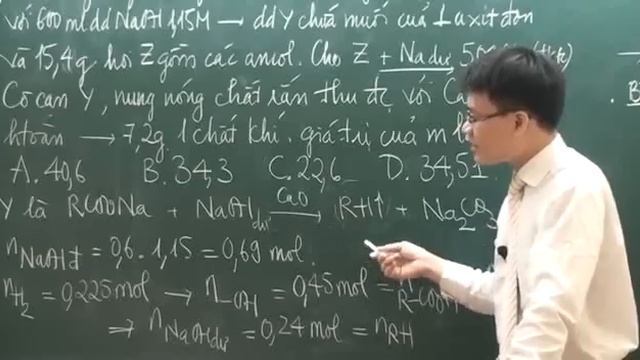 với 600 ml dd NaOH 1,15M → dd Y chứa muối của 1 axit đơn
và 15,4g hơi Z gồm các ancol. Cho Z + Na dư
Cô cạn Y, nung nóng chất rắn thu đc với Ca
htoàn → 7,2g 1 chất khí. giá trị của m là
A. 40,6 B. 34,3 C. 22,6 D. 34,51
Y là RCOONa + NaOH dư CaO → RH↑ + Na2CO3
nNaOH = 0,6 . 1,15 = 0,69 mol.
nH2 = 0,225 mol → n-OH = 0,45 mol = R-COO
⇒ nNaOH dư = 0,24 mol = nRH